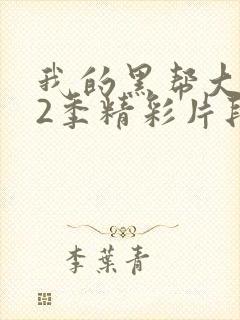 我的黑帮大
2季精彩片段
李葉青